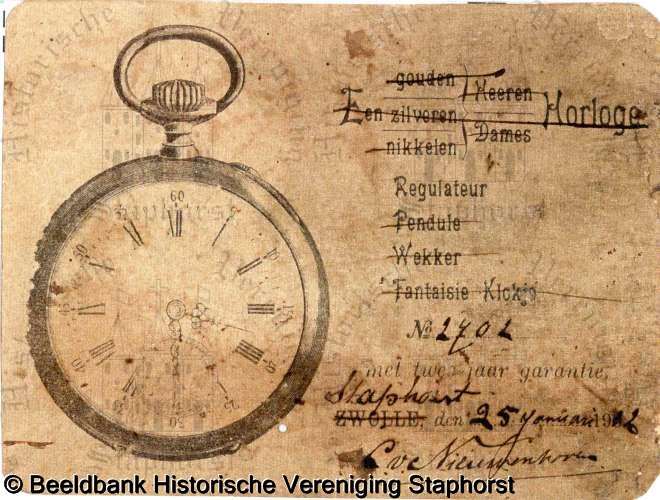 gouden
Heeren
Een zilveren Horloge
Dames
nikkelen
Regulateur
Pendule
Wekker
Fantaisie Klokje
№ 2702
met twee jaar garantie.
Staphorst
ZWOLLE, den 25 Januari 19
60
© Beeldbank Historische Vereniging Staphorst